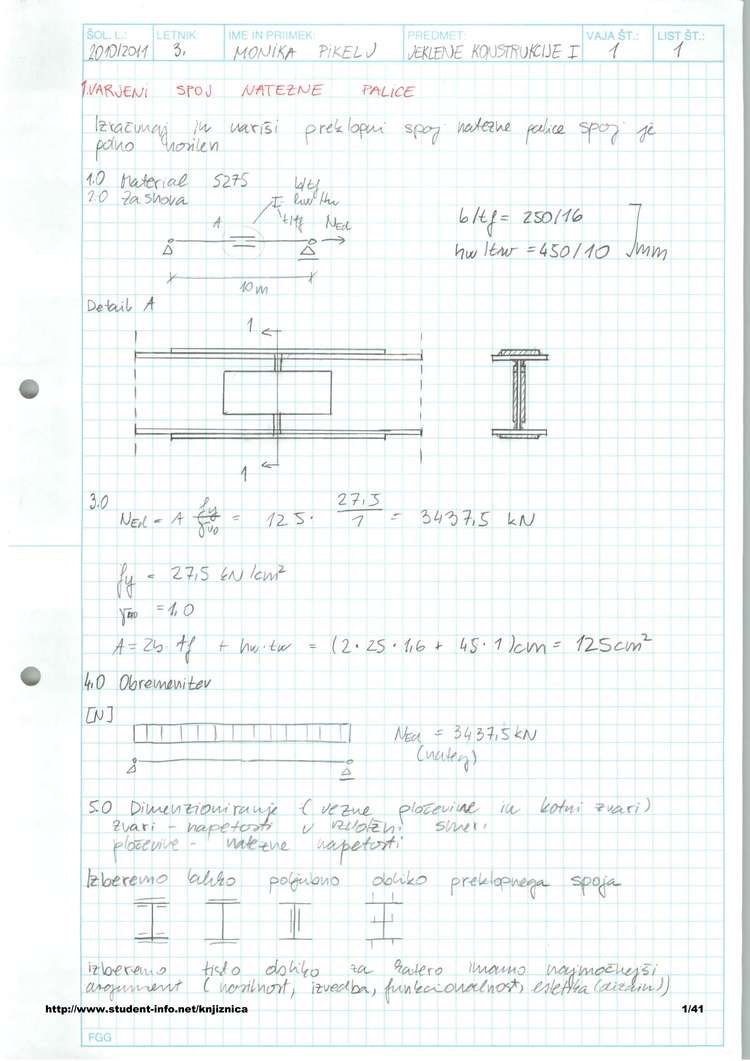 ŠOL. L.: LETNIK: IME IN PRIIMEK: PREDMET: VAJA ŠT.: LIST ŠT.:
2010/2011 3. MONIKA PIKELJ JEKLENE KONSTRUKCIJE I 1 1
1.VARJENI SPOJ NATEZNE PALICE
Izračunaj in nariši preklopni spoj natezne palice spoj je
polno nosilen
1.0 Material S275
2.0 Zasnova
b/tf
hw/tw
t/tf
A
NEd
b/tf = 250/16
hw/tw = 450/10
mm
10m
Detail A
1
1
3.0
NEd = A fy/γM0 = 125 · 27,5/1 = 3437,5 kN
fy = 27,5 kN/cm²
γM0 = 1,0
A = 2b·tf + hw·tw = (2·25·1,6 + 45·1)cm = 125cm²
4.0 Obremenitev
[N]
NEd = 3437,5 kN
(nateg)
5.0 Dimenzioniranje (vezne pločevine in kotni zvari)
zvari - napetosti v vzdolžni smeri
pločevine - natezne napetosti
Izberemo lahko poljubno obliko preklopnega spoja
izberemo tisto obliko za katero imamo najmočnejši
argument (nosilnost, izvedba, funkcionalnost, estetika (dizajn))
http://www.student-info.net/knjiznica 1/41
FGG